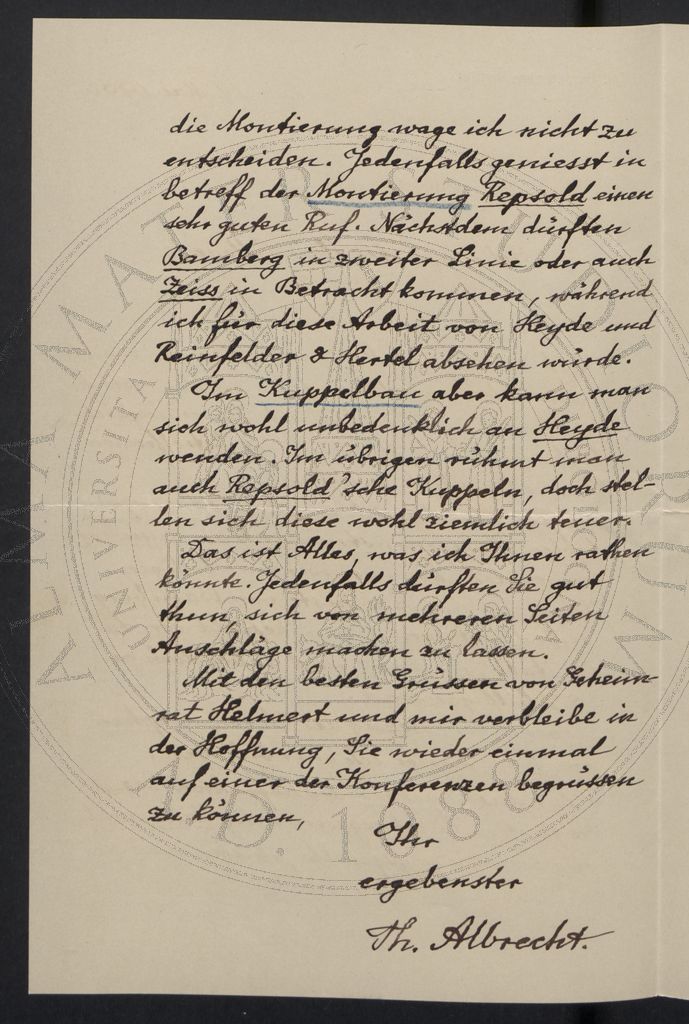 die Montierung wage ich nicht zu
entscheiden. Jedenfalls geniesst in
betreff der Montierung Repsold einen
sehr guten Ruf. Nächstdem dürften
Bamberg in zweiter Linie oder auch
Zeiss in Betracht kommen, während
ich für diese Arbeit von Heyde und
Reinfelder & Hertel absehen würde.
Im Kuppelbau aber kann man
sich wohl unbedenklich an Heyde
wenden. Im übrigen rühmt man
auch Repsold'sche Kuppeln, doch stel-
len sich diese wohl ziemlich teuer.
Das ist Alles, was ich Ihnen rathen
könnte. Jedenfalls dürften Sie gut
thun, sich von mehreren Seiten
Anschläge machen zu lassen.
Mit den besten Grüssen von Geheim-
rat Helmert und mir verbleibe in
der Hoffnung, Sie wieder einmal
auf einer der Konferenzen begrüssen
zu können,
Ihr
ergebenster
Th. Albrecht.